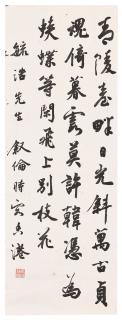 青陵臺畔日光斜萬古貞
魂倚暮霞莫許韓憑為
蛺蝶等閒飛上別枝花
先生 叙倫時香港